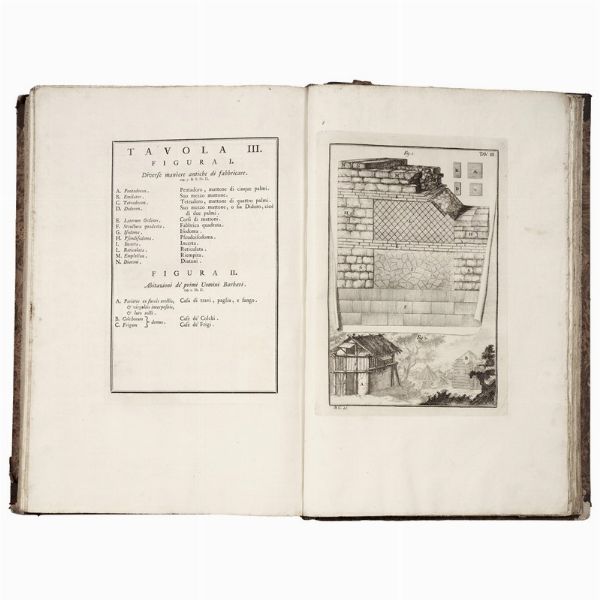 TAVOLA III.
FIGURA I.
Diverse maniere antiche di fabbricare.
A. Pentadoron. Pentadoro, mattone di cinque palmi.
B. Emilater. Suo mezzo mattone.
C. Tetradoron. Tetradoro, mattone di quattro palmi.
D. Didoron. Suo mezzo mattone, o sia Didoro, cioè
di due palmi.
E. Laterum Ordines. Corsi di mattoni.
F. Structura quadrata. Fabbrica quadrata.
G. Isodoma. Isodoma.
H. Pseudisodoma. Pseudoisodoma.
I. Incerta. Incerta.
L. Reticulata. Reticulata.
M. Emplecton. Riempita.
N. Diatoni. Diatoni.
FIGURA II.
Abitazioni de' primi Uomini Barbari.
A. Parietes ex furcis erectis, Case di travi, paglia, e fango.
& virgultis interpositis,
& luto
B. Colchorum } domus. Case de' Colchi.
C. Frigum Case de' Frigj.
Fig. 1. TAV. III
Fig. 2.